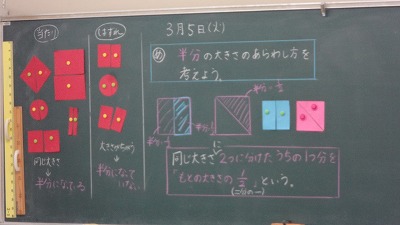 3月5日(火)
当たり
はずれ
め 半分の大きさのあらわし方を
考えよう。
同じ大きさ
↓
半分になっている
大きさがちがう
↓
半分になって
いない
半分 1/2
半分 1/2
半分 1/2
同じ大きさに2つに分けたうちの1つ分を
「もとの大きさの1/2」という。
(二分の一)